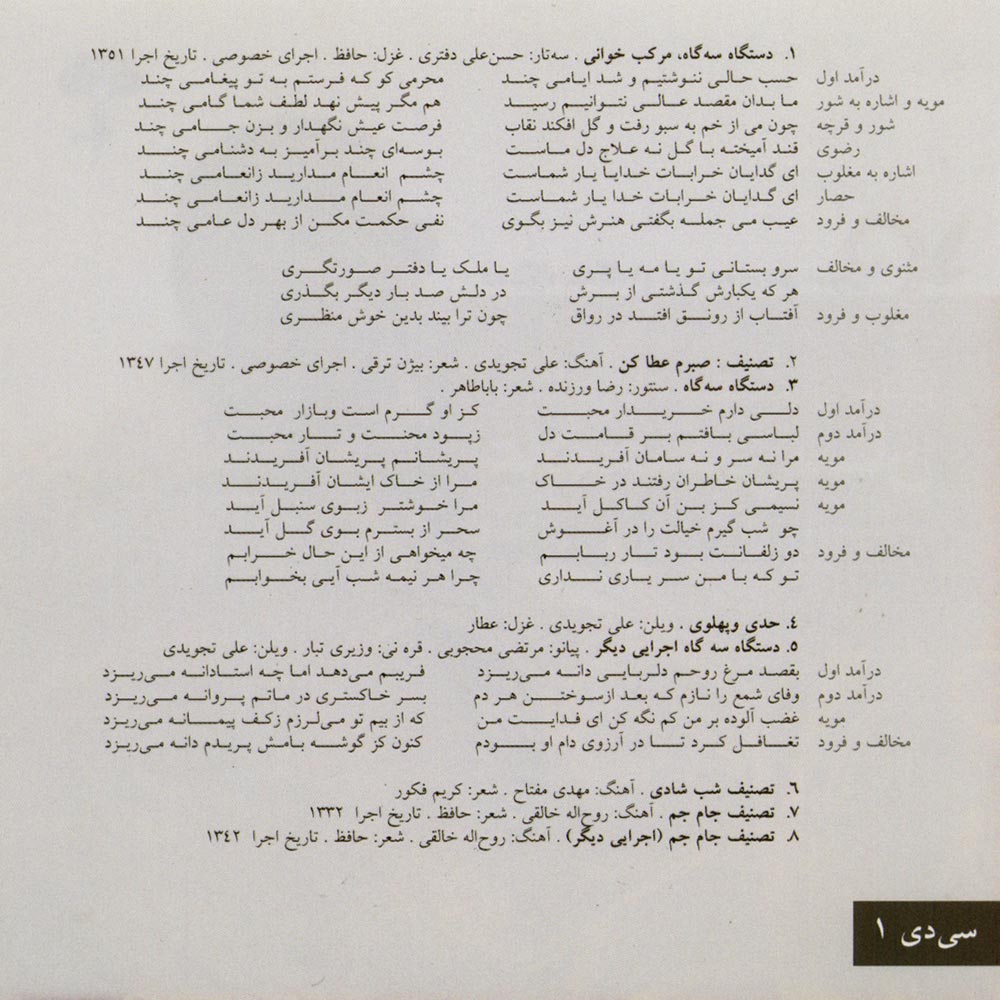 ۱. دستگاه سه‌گاه، مرکب خوانی . سه‌تار: حسن‌علی دفتری . غزل: حافظ . اجرای خصوصی . تاریخ اجرا ۱۳۵۱
درآمد اول حسب حالی ننوشتیم و شد ایامی چند محرمی کو که فرستم به تو پیغامی چند
مویه و اشاره به شور ما بدان مقصد عالی نتوانیم رسید هم مگر پیش نهد لطف شما گامی چند
شور و قرچه چون می از خم به سبو رفت و گل افکند نقاب فرصت عیش نگهدار و بزن جامی چند
رضوی قند آمیخته با گل نه علاج دل ماست بوسه‌ای چند برآمیز به دشنامی چند
اشاره به مغلوب ای گدایان خرابات خدایا یار شماست چشم انعام مدارید زانعامی چند
حصار ای گدایان خرابات خدا یار شماست چشم انعام مدارید زانعامی چند
مخالف و فرود عیب می جمله بگفتی هنرش نیز بگوی نفی حکمت مکن از بهر دل عامی چند
مثنوی و مخالف سرو بستانی تو یا مه یا پری یا ملک یا دفتر صورتگری
هر که یکبارش گذشتی از برش در دلش صد بار دیگر بگذری
مغلوب و فرود آفتاب از رونق افتد در رواق چون ترا بیند بدین خوش منظری
۲. تصنیف : صبرم عطا کن . آهنگ: علی تجویدی . شعر: بیژن ترقی . اجرای خصوصی . تاریخ اجرا ۱۳۴۷
۳. دستگاه سه‌گاه . سنتور: رضا ورزنده . شعر: باباطاهر .
درآمد اول دلی دارم خریدار محبت کز او گرم است وبازار محبت
درآمد دوم لباسی بافتم بر قامت دل زپود محنت و تار محبت
مویه مرا نه سر و نه سامان آفریدند پریشانم پریشان آفریدند
مویه پریشان خاطران رفتند در خاک مرا از خاک ایشان آفریدند
مویه نسیمی کز بن آن کاکل آید مرا خوشتر زبوی سنبل آید
چو شب گیرم خیالت را در آغوش سحر از بسترم بوی گل آید
مخالف و فرود دو زلفانت بود تار ربابم چه میخواهی از این حال خرابم
تو که با من سر یاری نداری چرا هر نیمه شب آیی بخوابم
۴. حدی وپهلوی . ویلن: علی تجویدی . غزل: عطار
۵. دستگاه سه گاه اجرایی دیگر . پیانو: مرتضی محجوبی . قره نی: وزیری تبار . ویلن: علی تجویدی
درآمد اول بقصد مرغ روحم دلربایی دانه می‌ریزد فریبم می‌دهد اما چه استادانه می‌ریزد
درآمد دوم وفای شمع را نازم که بعد ازسوختن هر دم بسر خاکستری در ماتم پروانه می‌ریزد
مویه غضب آلوده بر من کم نگه کن ای فدایت من که از بیم تو می‌لرزم زکف پیمانه می‌ریزد
مخالف و فرود تغافل کرد تا در آرزوی دام او بودم کنون کز گوشه بامش پریدم دانه می‌ریزد
۶. تصنیف شب شادی . آهنگ: مهدی مفتاح . شعر: کریم فکور
۷. تصنیف جام جم . آهنگ: روح‌اله خالقی . شعر: حافظ . تاریخ اجرا ۱۳۳۲
۸. تصنیف جام جم (اجرایی دیگر) . آهنگ: روح‌اله خالقی . شعر: حافظ . تاریخ اجرا ۱۳۴۲
سی‌دی ۱